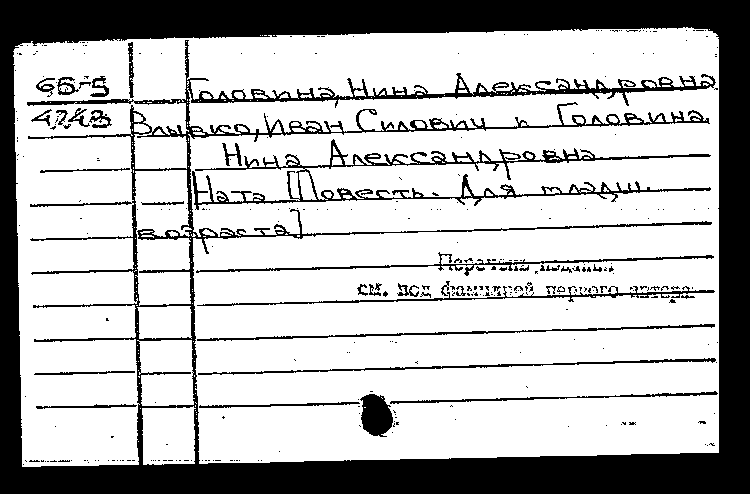 66-5 Головина, Нина Александровна
4248 Влывко, Иван Силович и Головина
Нина Александровна
Ната [Повесть. Для младш.
возраста]
Перечень изданий
см. под фамилией первого автора